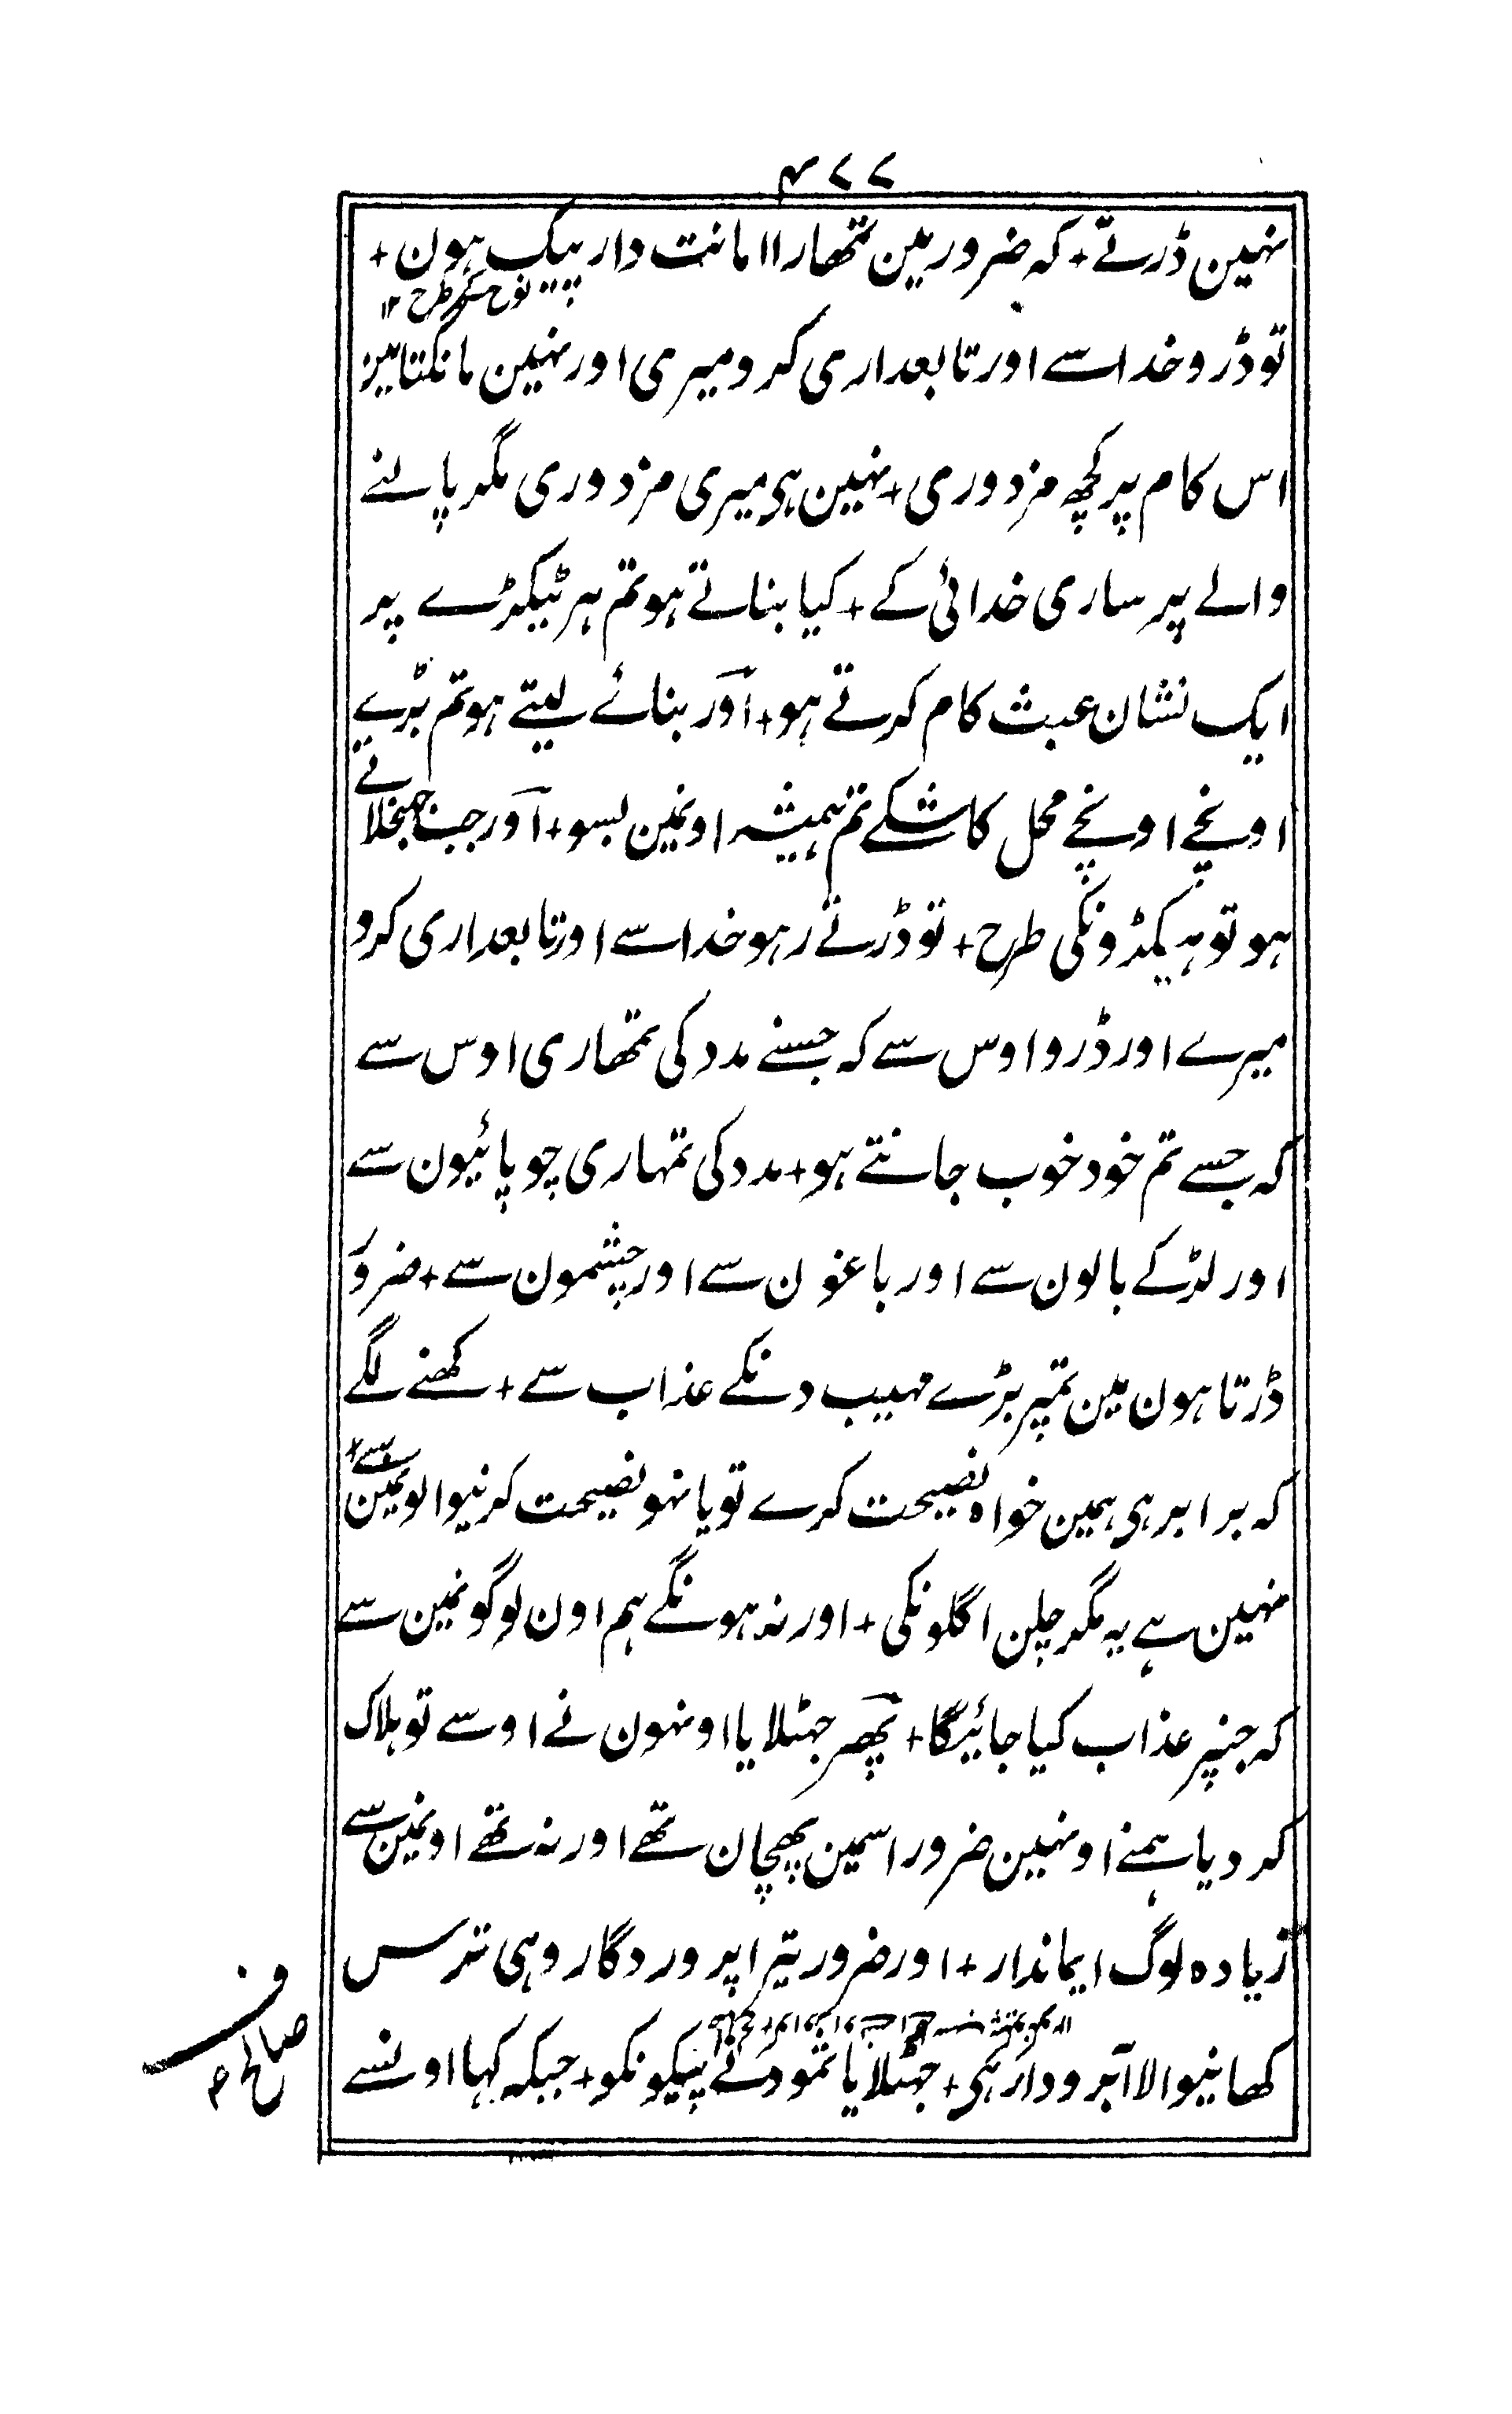 ۴۷۷
نہین ڈرتے + کہ ضرور مین تمھارا امانت دار پیک ہون +
نوح کی طرح ۱۲
تو ڈرو خدا سے اور تابعداری کرو میری اور نہین مانگتا مین
اس کام پر کچھ مزدوری + نہین ہی میری مزدوری مگر پالنے
والے پر ساری خدائی کے + کیا بناتے ہو تم ہر ٹیکڑے پر
ایک نشان عبث کام کرتے ہو + اور بنائے لیتے ہو تم بڑے
اونچے اونچے محل کاشکے تم ہمیشہ اونمین بسو + اور جب جھنجلاتے
ہو تو ہیکڑونکی طرح + تو ڈرتے رہو خدا سے اور تابعداری کرو
میرے اور ڈرو اوس سے کہ جسنے مدد کی تمھاری اوس سے
کہ جسے تم خود خوب جانتے ہو + مدد کی تمہاری چوپائیون سے
اور لڑکے بالون سے اور باغون سے اور چشمون سے + ضرور
ڈرتا ہون مین تمپر بڑے مہیب دنکے عذاب سے + کھنے لگے
کہ برابر ہی ہمین خواہ نصیحت کرے تو یا نہو نصیحت کرنیوالونمین سے +
نہین ہے یہ مگر چلن اگلونکی + اور نہ ہونگے ہم اون لوگونمین سے
کہ جنپر عذاب کیا جائیگا + پھر جہٹلایا اونہون نے اوسے تو ہلاک
کر دیا ہمنے اونہین ضرور اسمین پھچان تھے اور نہ تھے اونمین سے
زیادہ لوگ ایماندار + اور ضرور تیرا پروردگار وہی ترس
کھانیوالا آبرودار ہی + جہٹلایا ثمود نے پیکونکو + جبکہ کہا اونسے
ف
صالح ؑ